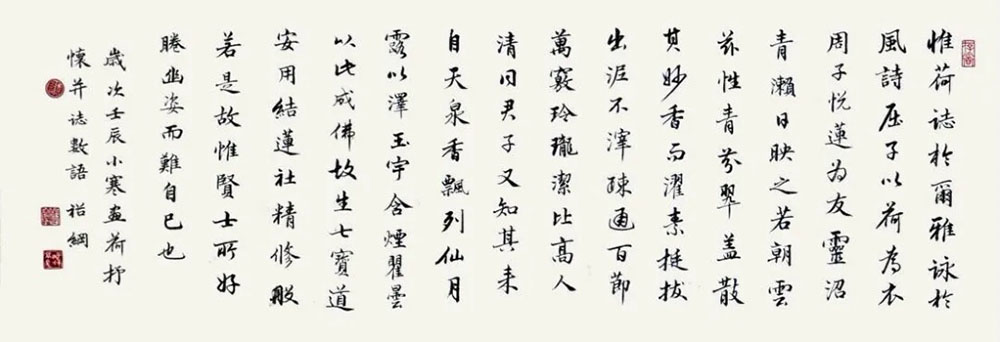 惟荷誌於爾雅詠於
風詩屈子以荷為衣
周子悅蓮為友靈沼
青瀨日映之若朝雲
茲性青芬翠蓋散
其妙香而濯素挺拔
出泥不滓疎通百節
萬竅玲瓏潔比高人
清同君子又知其來
自天泉香飄列仙月
露以澤玉宇含煙瞿曇
以此成佛故生七寶道
安用結蓮社精修般
若是故惟賢士所好
睠幽姿而難自已也
歲次壬辰小寒畫荷抒
懷并誌數語 綱